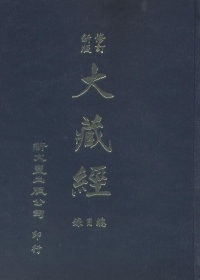 修訂
新版
大藏經
總目錄
新文豐出版公司 印行